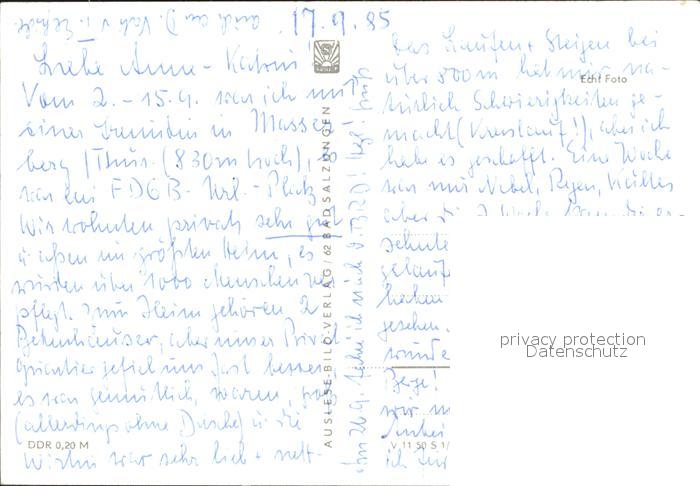 17.9.85
Liebe Anne-Katrin!
Vom 2.-15.9. war ich mit
einer in Masser-
berg /Thür. (830m hoch), es
war ein FDGB-Url.-Platz
Wir wohnten privat sehr gut
u. aßen im größten Heim, es
wurden über 1000 Menschen ver-
pflegt. Zum Heim gehören 2
Bettenhäuser, aber unser Privat-
quartier gefiel uns fast besser
es war gemütlich, warm,
(allerdings ohne Dusche) u. die
Wirtin war sehr lieb + nett.
Das Laufen + Steigen bei
über 800m hat mir na-
türlich Schwierigkeiten ge-
macht (Kreislauf!), aber ich
habe es geschafft. Eine Woche
war nur Nebel, Regen, Kälte
aber die 2. Woche
gelauf
gesehen.
wurde
Berge!
war
ich
Am 26.9. fahre ich nach d. BRD!
Echt Foto
AUSLESE-BILD-VERLAG / 62 BAD SALZUNGEN
DDR 0,20 M
V 11 50 S 1/
privacy protection
Datenschutz